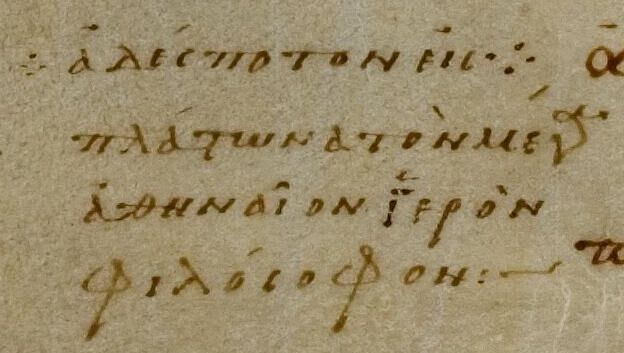 ⁘ ἀδέσποτον εἰς ⁘
πλάτωνα τὸν μέγα
ἀθηναῖον ἱερὸν
φιλόσοφον:—